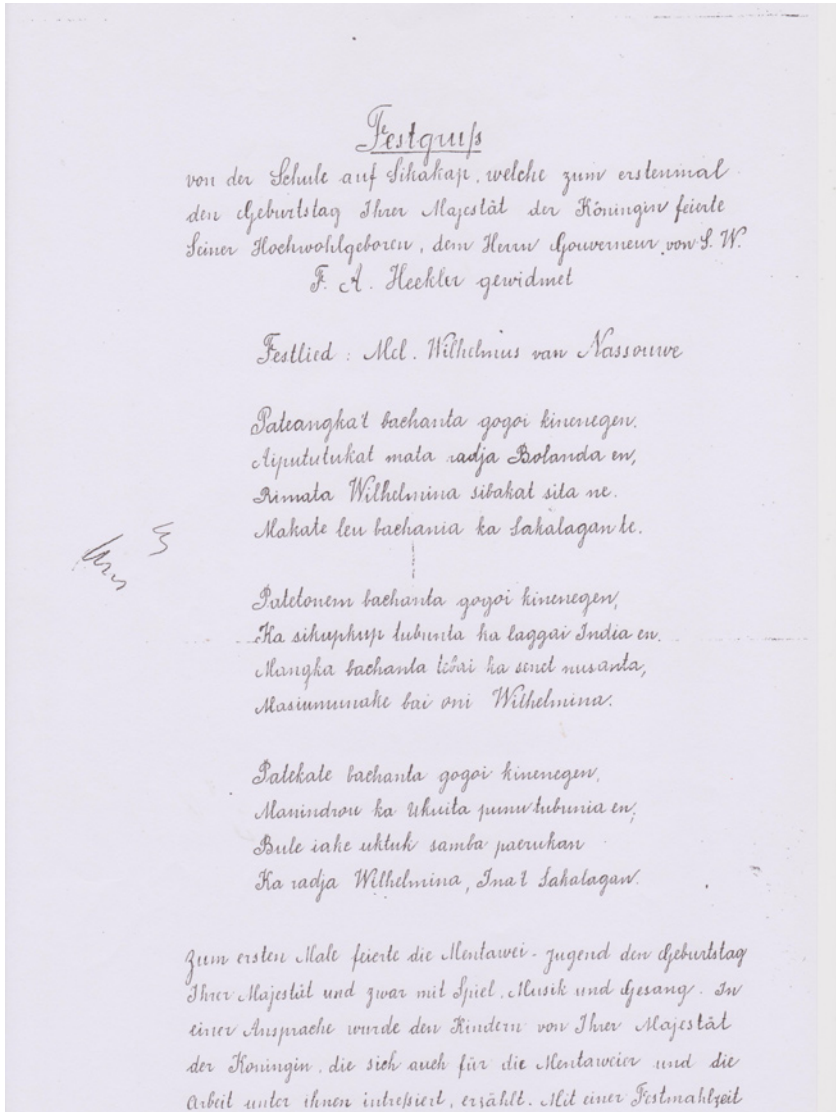 Festgruß
von der Schule auf Sikakap, welche zum erstenmal
den Geburtstag Ihrer Majestät der Köningin feierte
Seiner Hochwohlgeboren, dem Herrn Gouverneur von S. W.
F. A. Heckler gewidmet
Festlied : Mel. Wilhelmus van Nassouwe
Pateangka't bachanta gogoi kinenegen,
Aiputukat mata radja Bolanda en,
Rimata Wilhelmina sibakat sita ne.
Makate leu bachania ka Sakalagan te.
Patetonem bachanta gogoi kinenegen,
Ka sikupkup tubunta ka laggai India en.
Mangka bachanta tebai ka senet nusanta,
Masiumunake bai oni Wilhelmina.
Patekate bachanta gogoi kinenegen,
Manindrou ka Ukuita punu tubunia en,
Bule iake uktuk samba paerukan
Ka radja Wilhelmina, Ina't Sakalagan.
Zum ersten Male feierte die Mentawei-Jugend den Geburtstag
Ihrer Majestät und zwar mit Spiel, Musik und Gesang. In
einer Ansprache wurde den Kindern von Ihrer Majestät
der Koningin, die sich auch für die Mentaweier und die
Arbeit unter ihnen intreßiert, erzählt. Mit einer Festmahlzeit